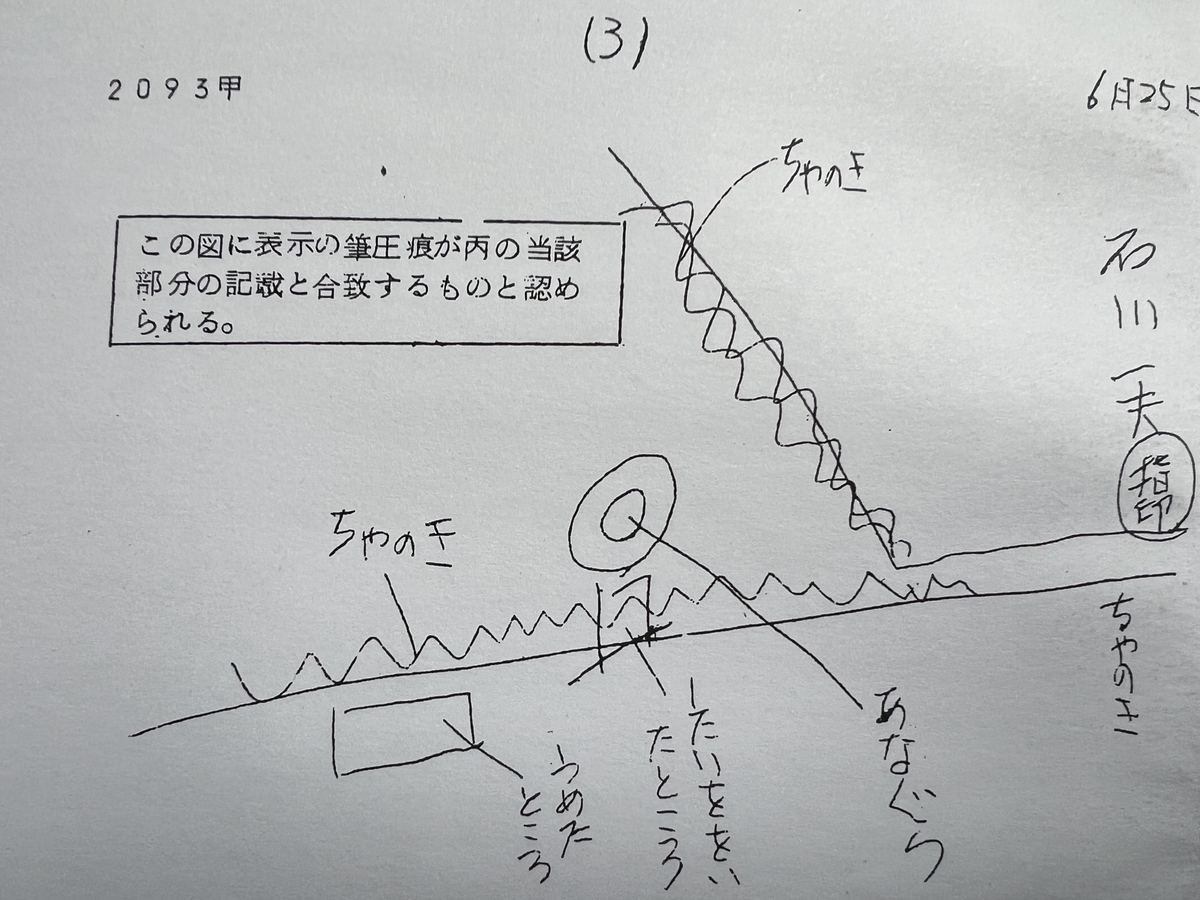 (3)
2093甲
6月25日
ちやのき
この図に表示の筆圧痕が丙の当該
部分の記載と合致するものと認め
られる。
石川一夫
指印
ちやのき
ちやのき
あなぐら
したいををい
たところ
うめた
ところ